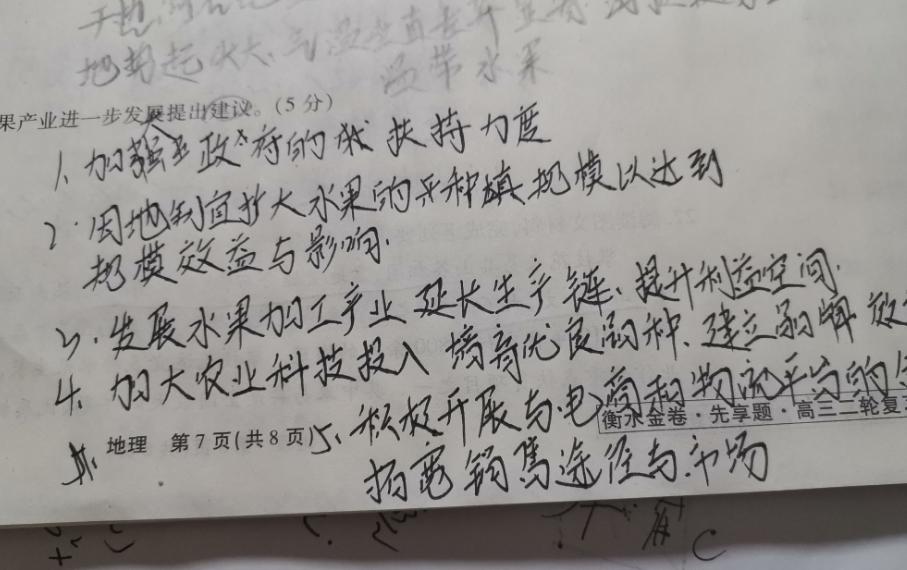 地势起伏大、气温垂直
温带水果
果产业进一步发展提出建议。(5分)
1、加强政府的扶持力度
2、因地制宜扩大水果的种植规模以达到
规模效益与影响.
3、发展水果加工产业 延长生产链、提升利益空间.
4、加大农业科技投入 培育优良品种、建立品牌效
5、积极开展与电商和物流平台的
衡水金卷·先享题·高三二轮复
地理 第7页(共8页)
拓宽销售途径与市场
C